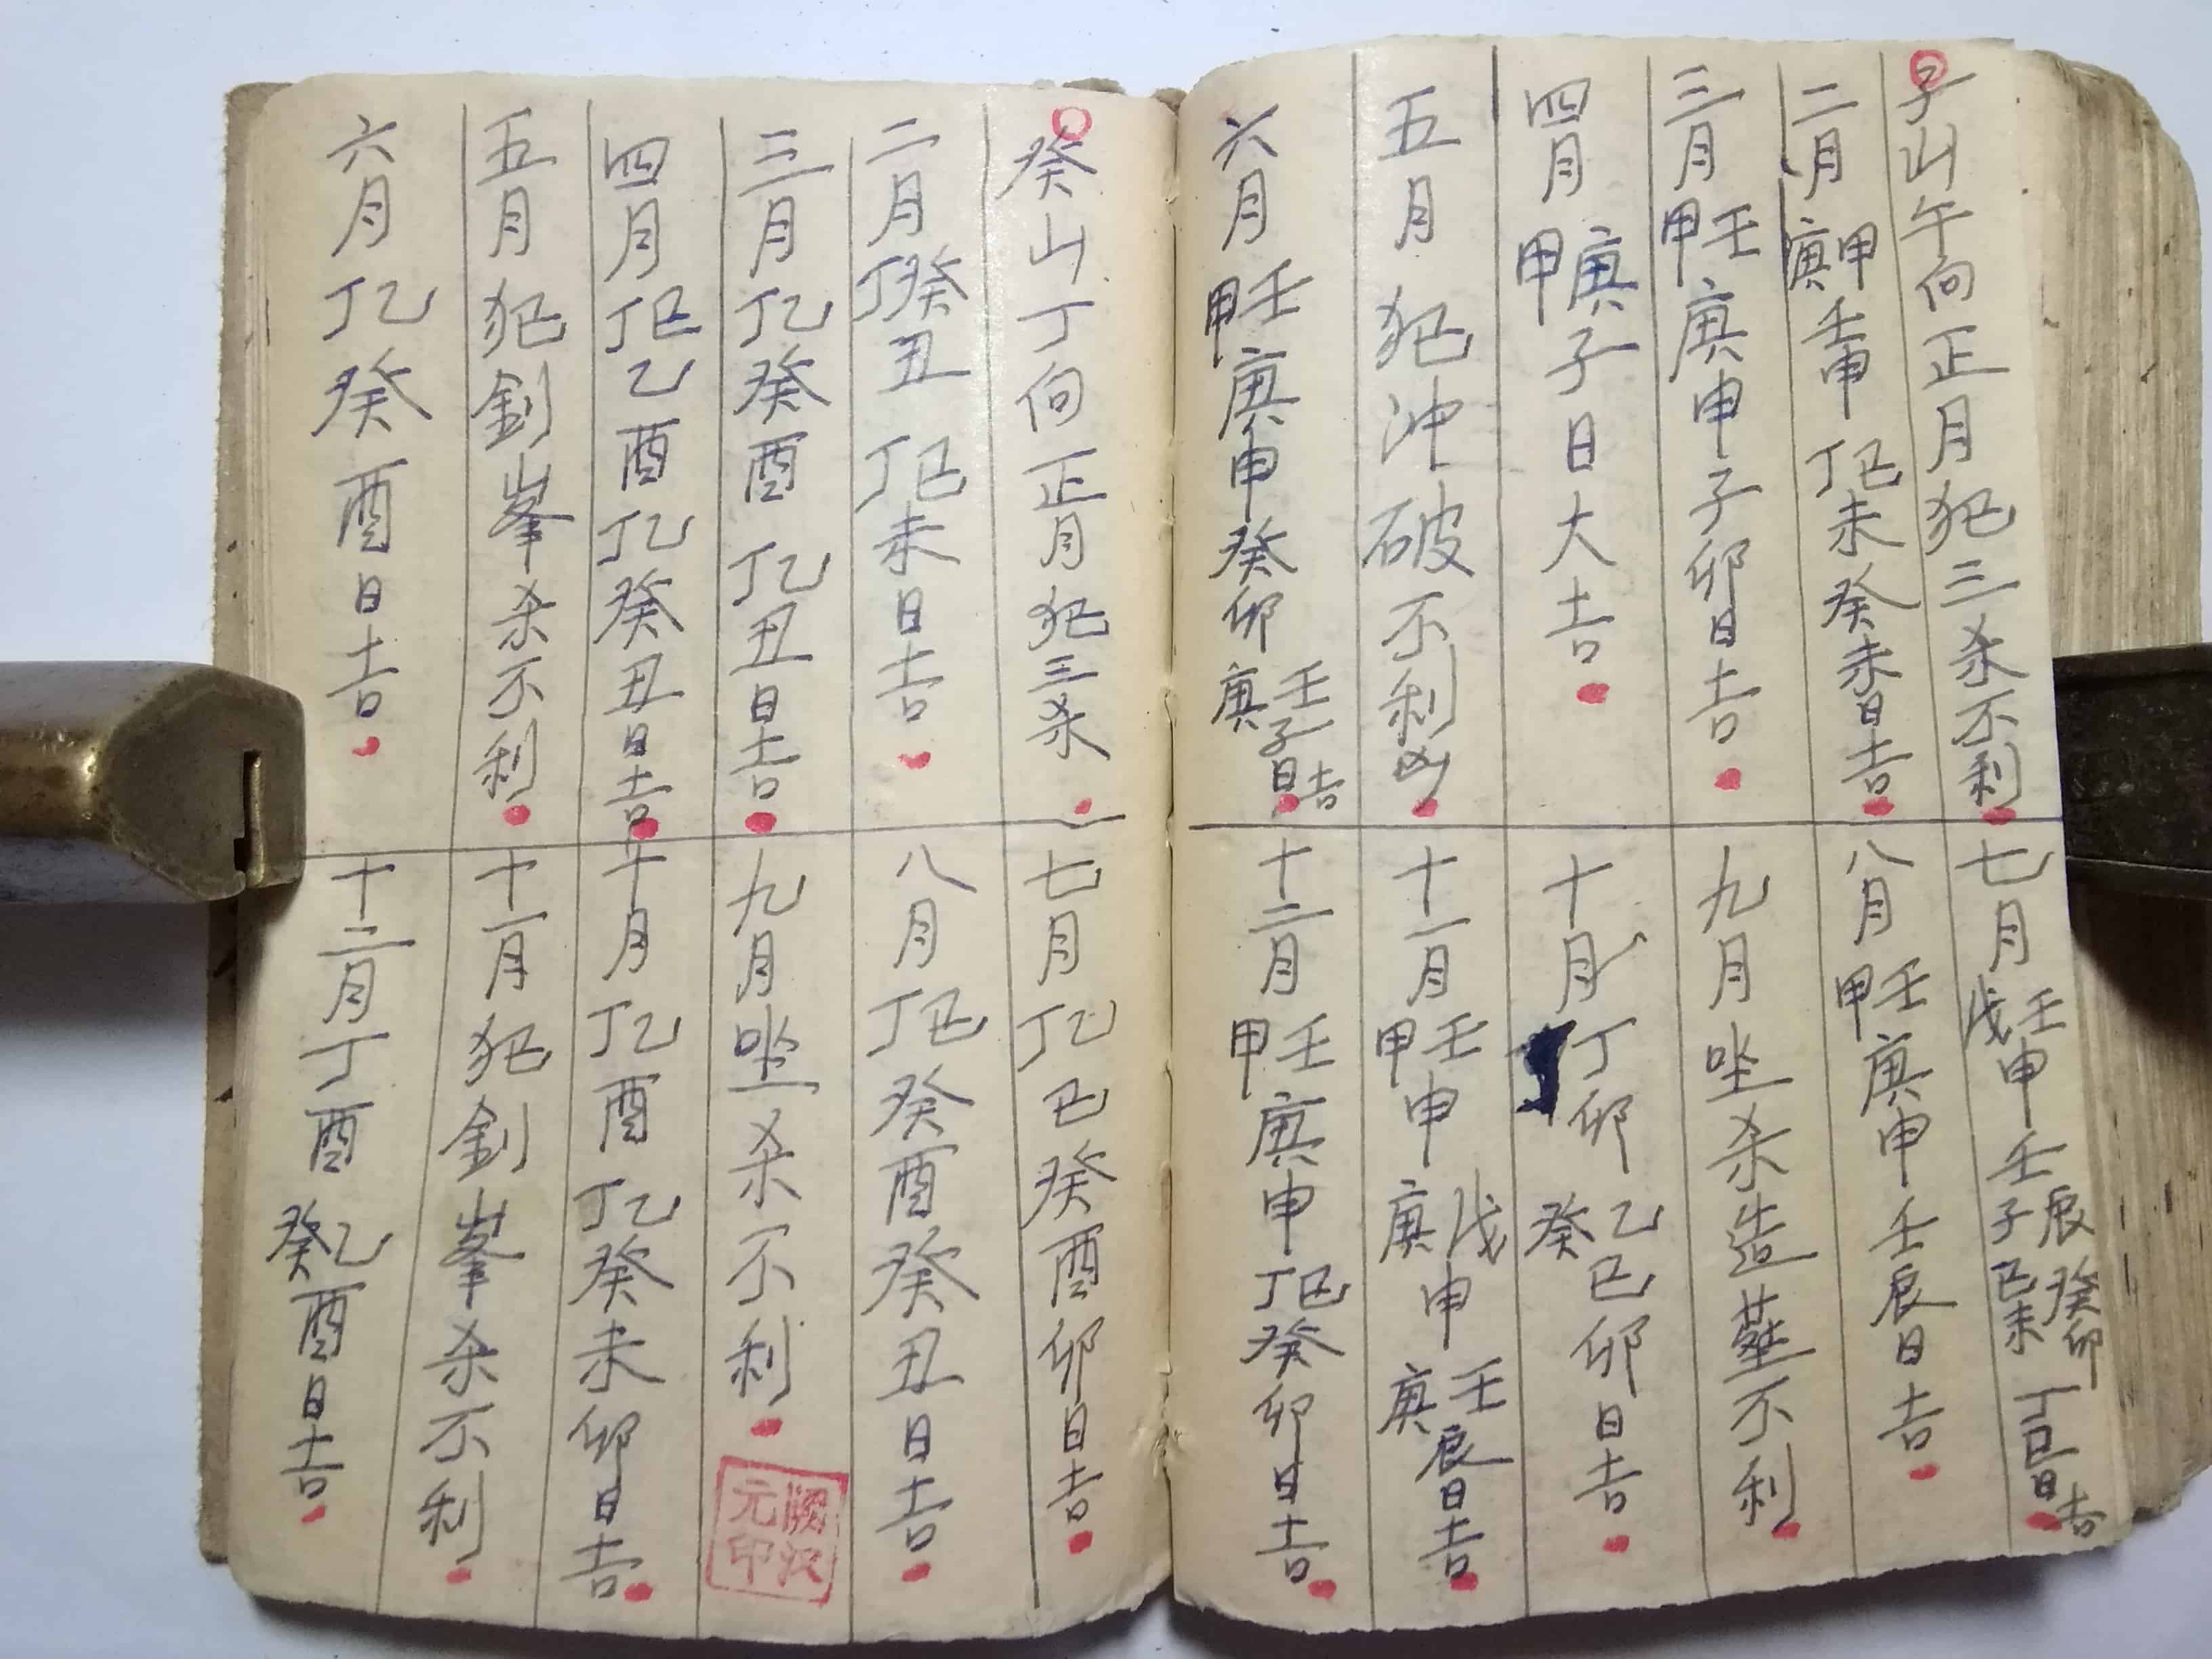 子山午向正月犯三杀不利
二月甲庚壬申丁己未癸未日吉
三月壬甲庚申子卯日吉
四月庚甲子日大吉
五月犯冲破不利凶
六月壬甲庚申癸卯壬庚子日吉
七月壬戊申壬辰子癸卯己未丁巳日吉
八月壬甲庚申壬辰日吉
九月坐杀造葬不利
十月丁卯乙癸巳卯日吉
十一月壬甲申戊庚申壬庚辰日吉
十二月壬甲庚申丁巳癸卯日吉
癸山丁向正月犯三杀
二月癸丁丑丁己未日吉
三月丁乙癸酉丁乙丑日吉
四月丁己乙酉丁乙癸丑日吉
五月犯劍峯杀不利
六月丁乙癸酉日吉
七月丁乙巳癸酉卯日吉
八月丁己癸酉癸丑日吉
九月坐杀不利
十月丁乙酉丁乙癸未卯日吉
十一月犯劍峯杀不利
十二月丁酉乙癸酉日吉
元印